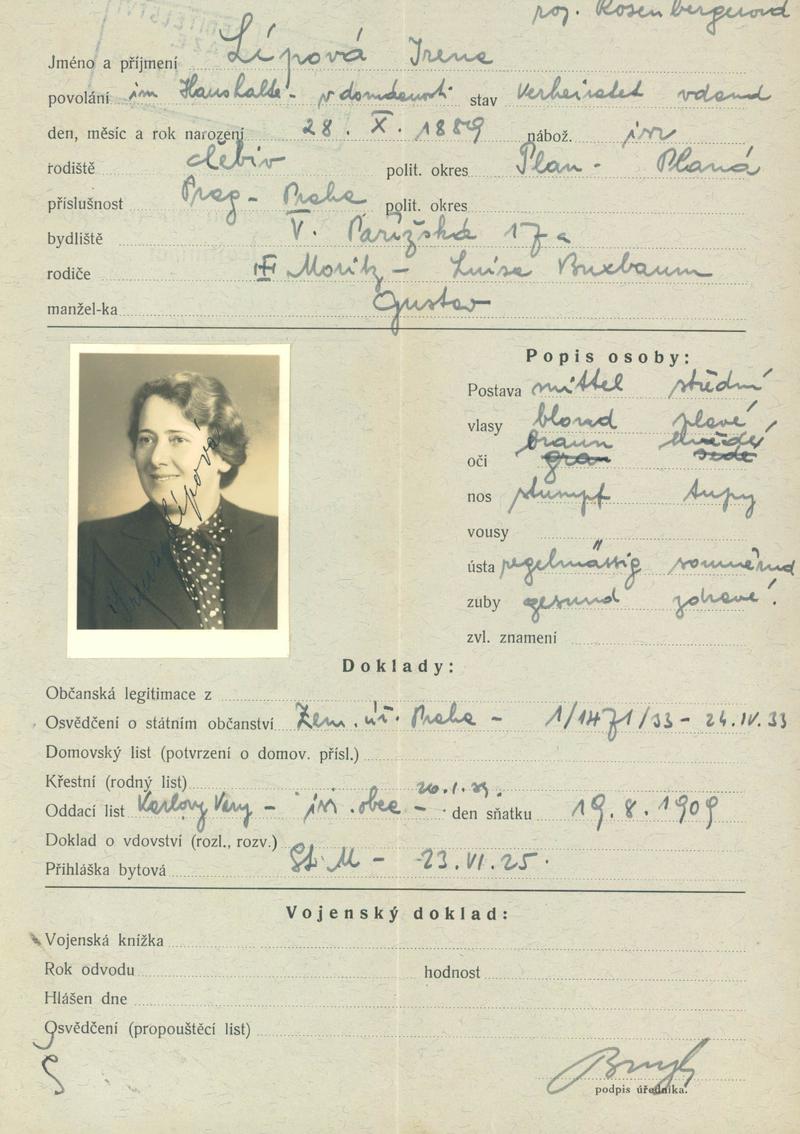 roz. Rosenbergerová
Jméno a příjmení Lípová Irena
povolání im Haushalte - v domácnosti stav verheiratet vdaná
den, měsíc a rok narození 28. X. 1889 nábož. isr
rodiště polit. okres Plan - Planá
příslušnost Prag - Praha polit. okres
bydliště V. Pařížská 17a
rodiče Moritz - Luisa Buxbaum
manžel-ka Gustav
Popis osoby:
Postava mittel střední
vlasy blond plavé
braun hnědé
oči grau šedé
nos stumpf tupý
vousy
ústa regelmässig souměrná
zuby gesund zdravé
zvl. znamení
Irena Lípová
Doklady:
Občanská legitimace z
Osvědčení o státním občanství Zem. úř. Praha - 1/1471/33 - 24.IV.33
Domovský list (potvrzení o domov. přísl.)
Křestní (rodný list)
Oddací list Karlovy Vary - isr. obec - den sňatku 19. 8. 1909
Doklad o vdovství (rozl., rozv.)
Přihláška bytová St. M - 23.VI.25.
Vojenský doklad:
Vojenská knížka
Rok odvodu hodnost
Hlášen dne
Osvědčení (propouštěcí list)
podpis úředníka.